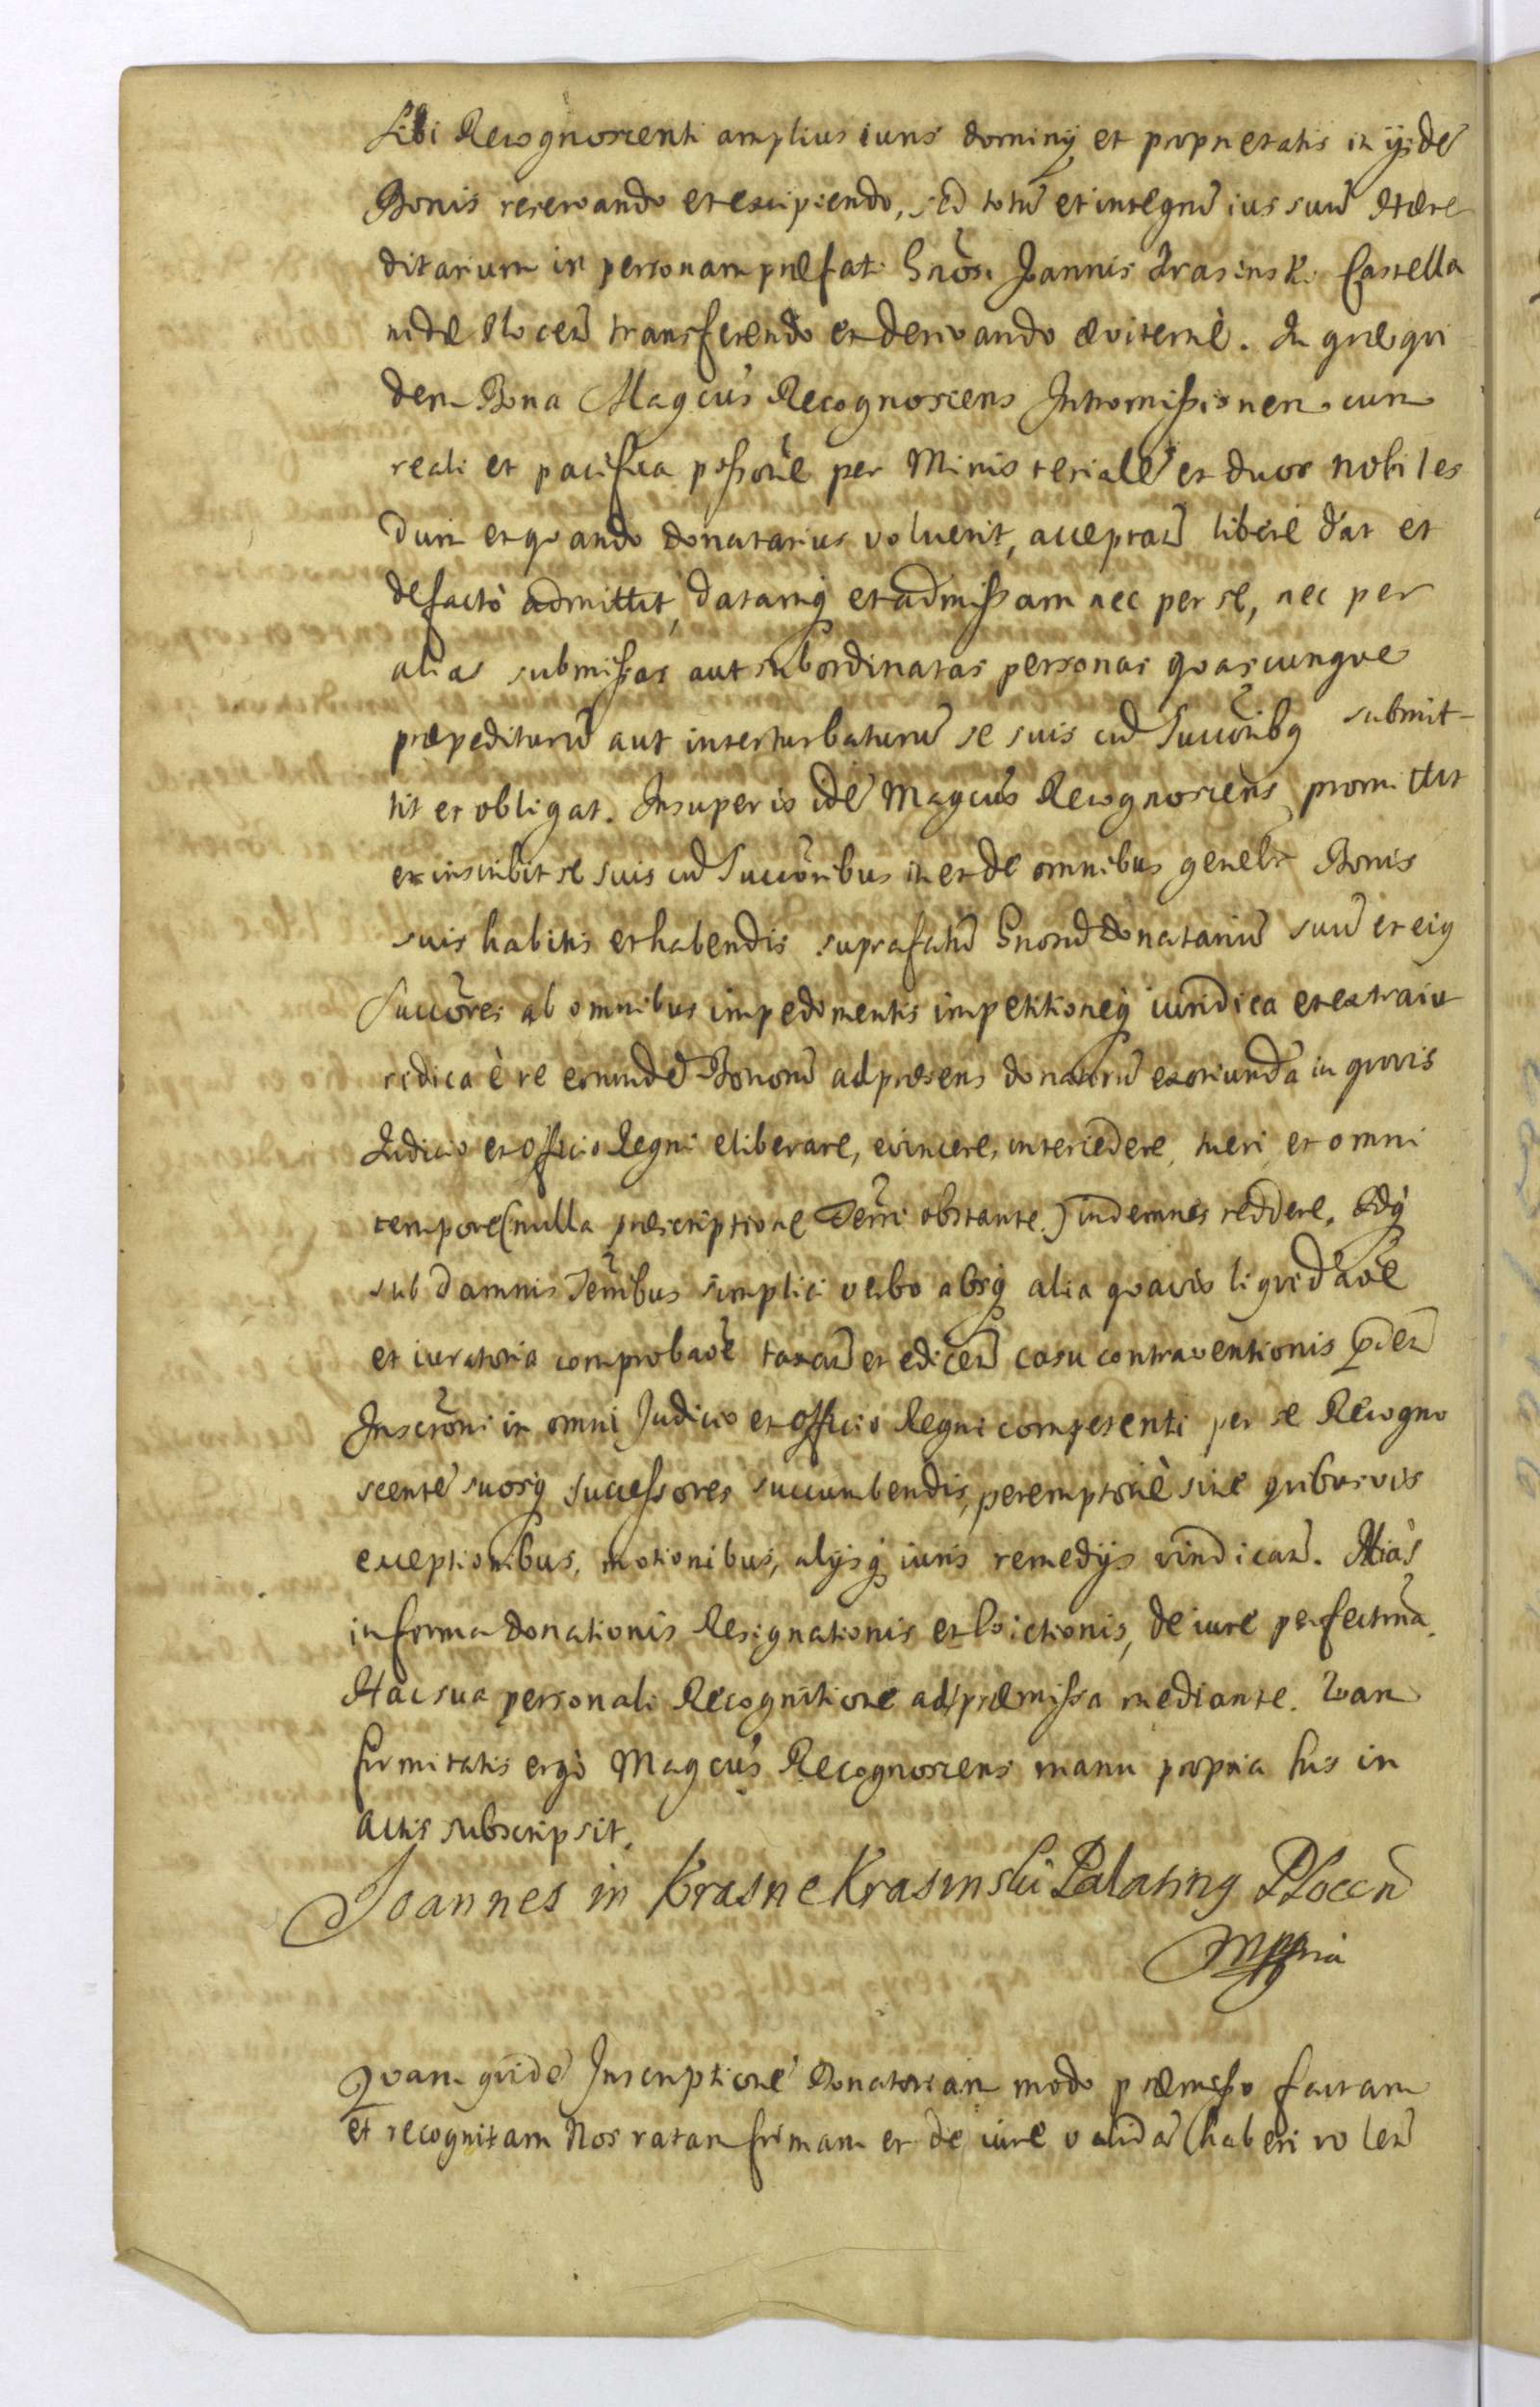 Sibi Recognoscenti amplius iuris dominij et proprietatis in ijsdē
Bonis reservando et excipiendo, sed totū et integrū ius suū Hære
ditarium in personam præfati Gnōsi Joannis Krasinski Castella
nidæ Plocen̄ transferendo et derivando æviternè. In quæ qui
dem Bona Magcūs Recognoscens Intromißionem cum
reali et pacifica poßōne per Ministerialē et duos nobiles
dum et quando donatarius voluerit, acceptan̄ liberè dat et
de facto admittit, datamq; et admißam nec per se, nec per
alias submißas aut subordinatas personas quascunque
præpediturū aut interturbaturū se suis cū Succōribq submit-
tit et obligat. Insuper is idē Magcūs Recognoscens promittit
et inscribit se suis cū Succōribus in et de omnibus genelr Bonis
suis habitis et habendis suprafatū Gnosū donatariū suū et eiq
Succōres ab omnibus impedimentis impetitioneq; iuridica et extraiu
ridica è re eorundē Bonorū ad præsens donatorū exoriundā in quovis
Judicio et officio Regni eliberare, evincere, intercedere, tueri et omni
tempore (nulla præscriptione Terrī obstante) indemnes reddere. Idq;
sub damnis Terribus simplici verbo absq; alia quavis liquidāōe
et iuratoria comprobāōe taxan̄ et edicen̄ casu contraventionis p̄nti
Inscrōni in omni Judicio et officio Regni competenti per se Recogno
scentē suosq; succeßores succumbendis, peremptoriè sine quibusvis
exceptionibus, motionibus, alijsq; iuris remedijs vindican̄. Aliàs
in forma donationis Resignationis et Evictionis, de iure perfectißma.
Hac sua personali Recognitione ad præmißa mediante. Quam
firmitatis ergò Magcūs Recognoscens manu propria his in
actis subscripsit.
Joannes in Krasne Krasinski Palatinq Plocen̄
mppria
Quam quidē Inscriptionē donatoriam modo præmißo factam
et recognitam Nos ratam firmam et de iure validā haberi volen̄